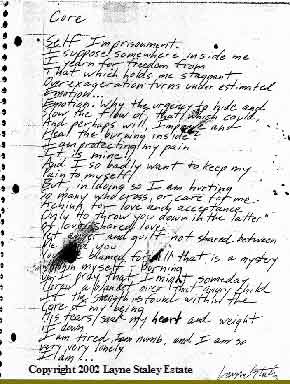 Core
Self Imprisonment.
I suppose somewhere inside me
I yearn for freedom from
That which holds me stagnant
Over exageration turns under estimated
Emotion...
Emotion. Why the urgency to hide and
slow the flow of that which could,
And perhaps will and
Heal the burning inside
I am protecting my pain
It is mine!
And I so badly want to keep my
Pain to myself
But, in doing so I am hurting
so many who cross, or care for me.
Aching for love and acceptance
Only to throw you down in the latter
Of love shared love
and guilt not shared between
you
blamed for all that is a mystery
within myself burning
I pray that I might someday
a blanket over that angry child
If the strength is found within the
Core of my being
His tears soak my heart and weight
it down
I am tired, I am numb, and I am so
very very lonely
I am I...
Copyright 2002 Layne Staley Estate